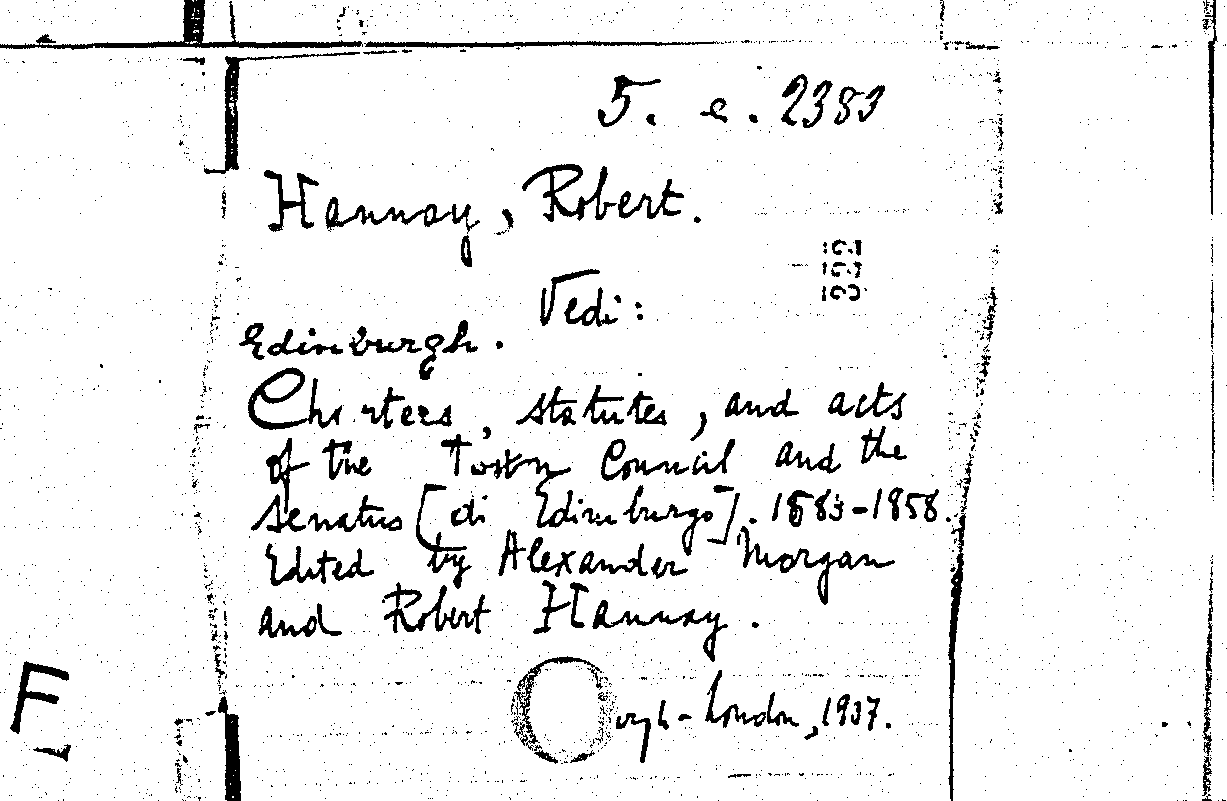 5. e. 2383
Hannay, Robert.
Vedi:
Edinburgh.
Charters, statutes, and acts
of the Town Council and the
senatus [di Edimburgo]. 1583-1858.
Edited by Alexander Morgan
and Robert Hannay.
urgh-London, 1937.
F